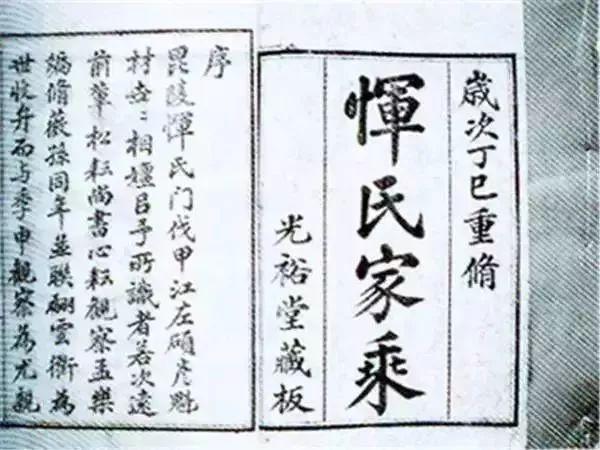 歲次丁巳重脩
惲氏家乘
光裕堂藏板
序
毘陵惲氏門伐甲江左碩彦魁
材世〻相嬗以予所識者若次遠
前輩松耘尚書心耘觀察孟樂
編脩薇孫同年並聯翩雲衢為
世收弁而與季申觀察為尤親